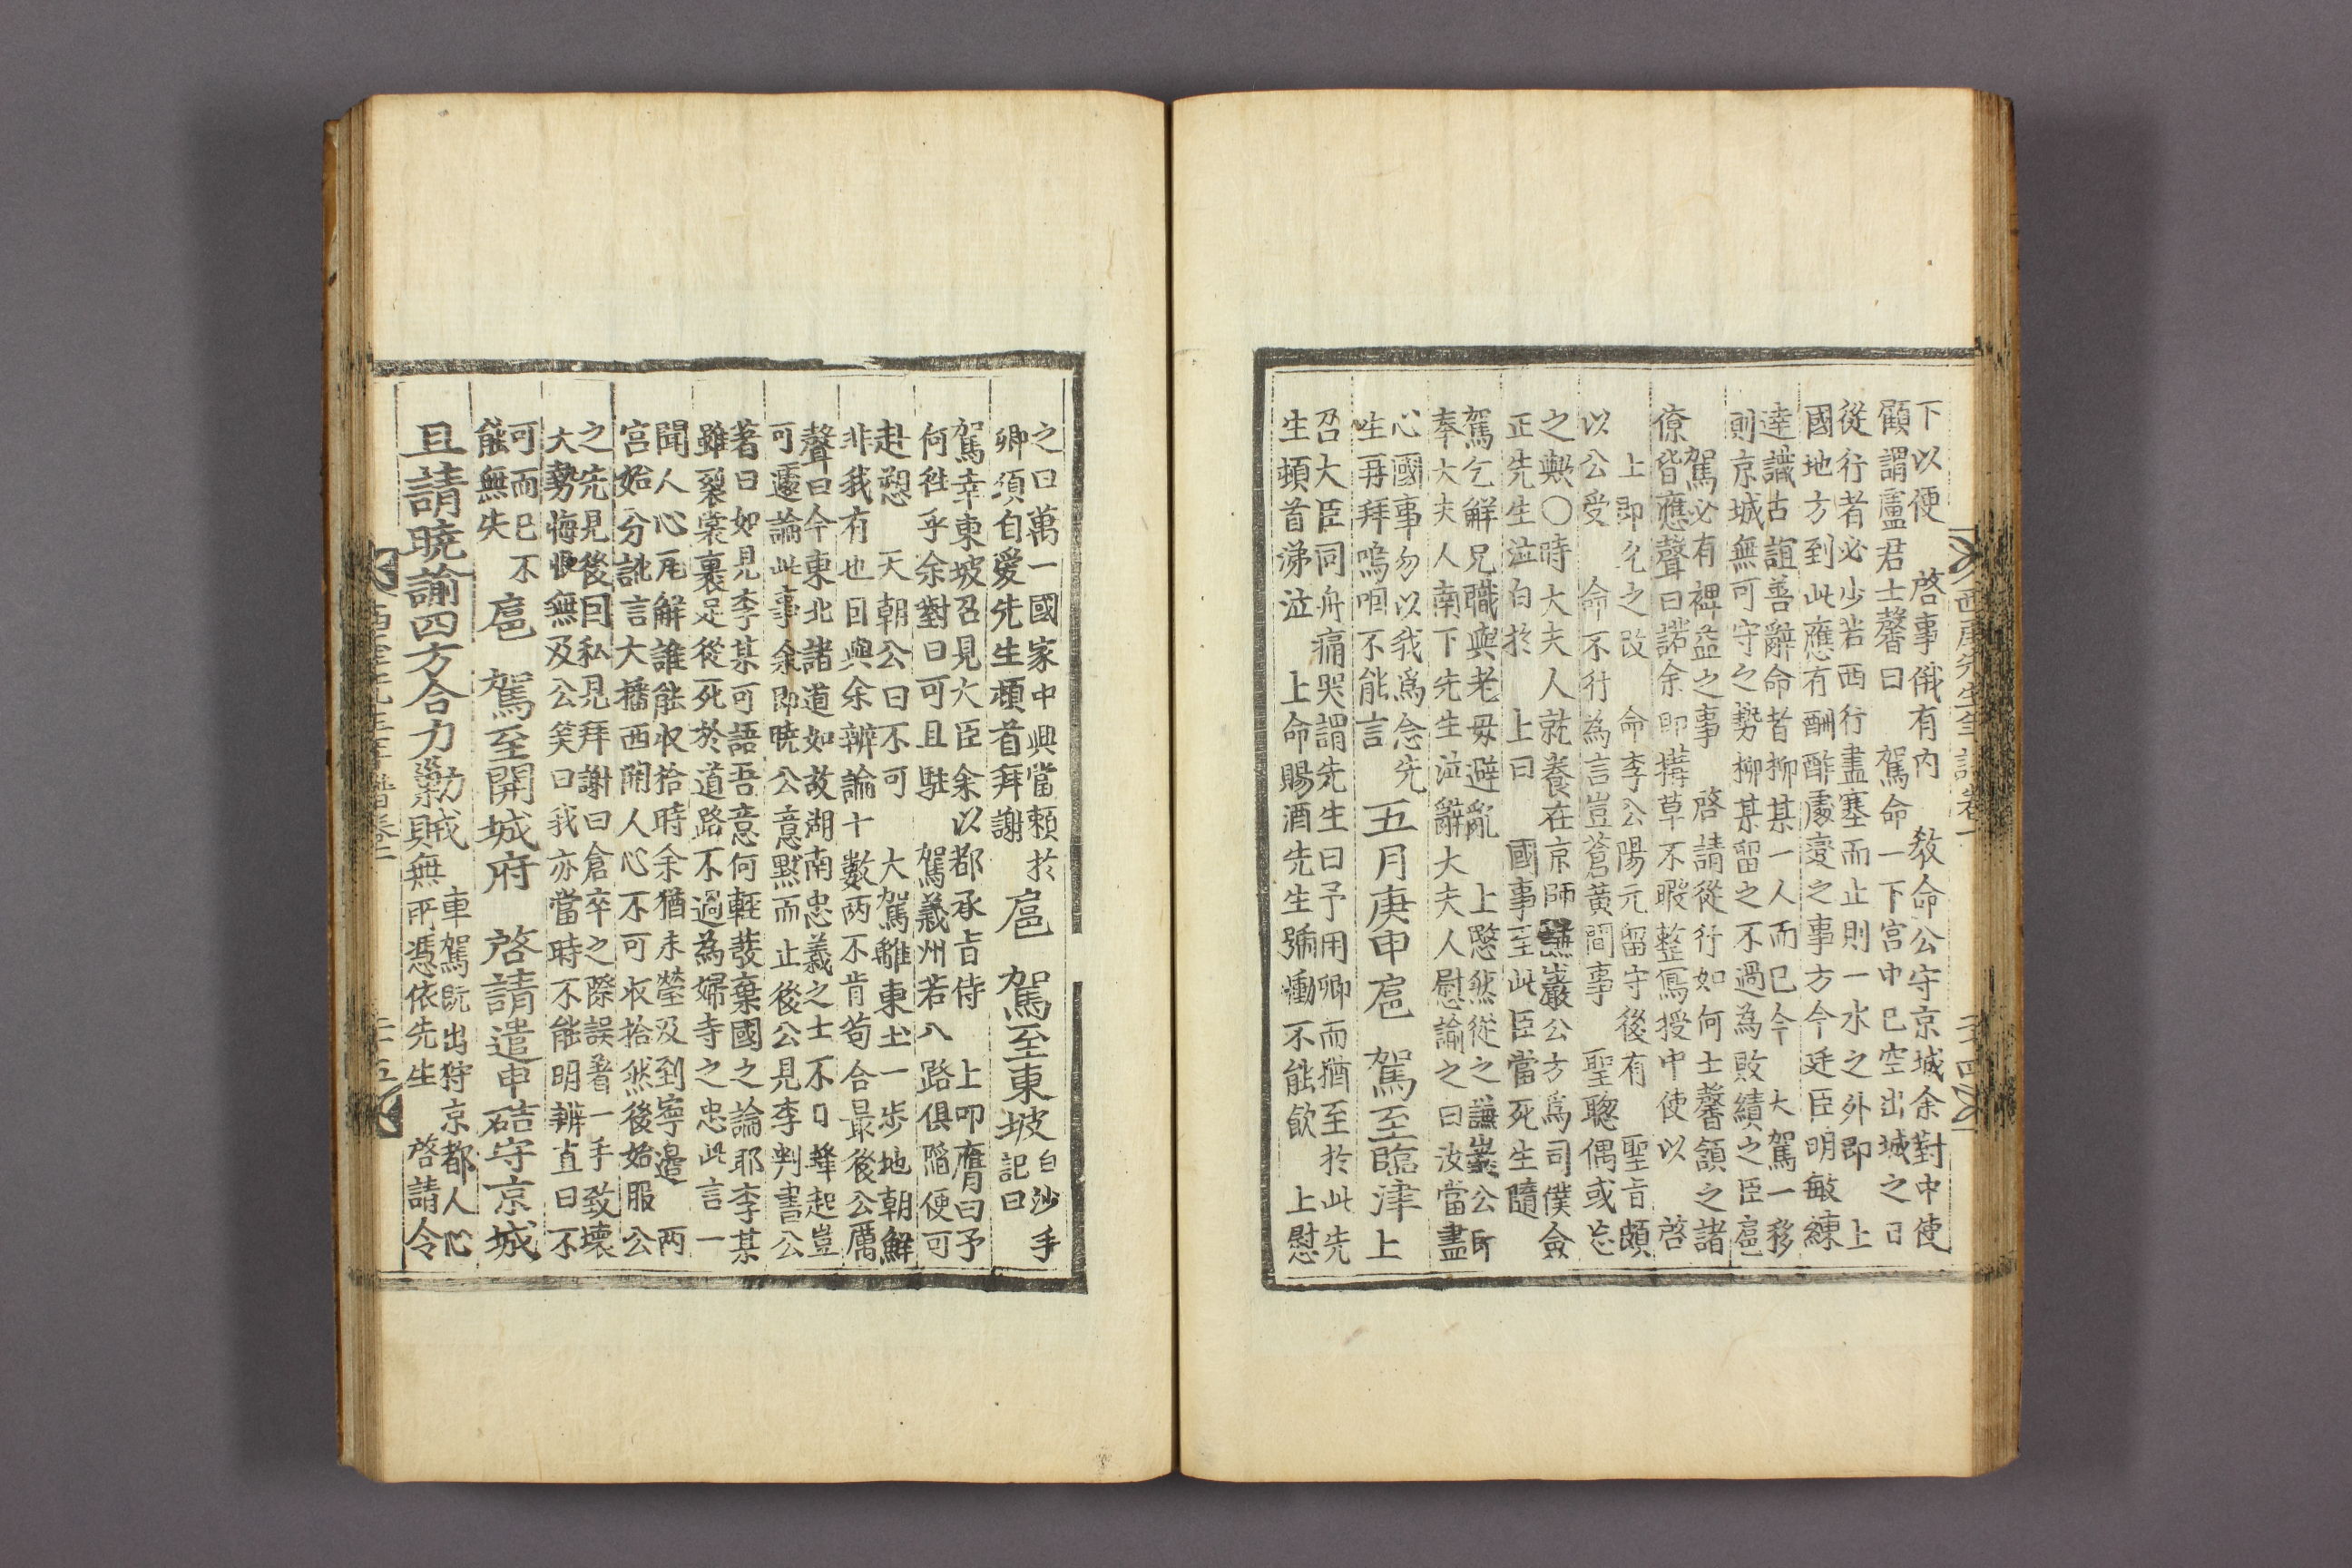 下以便 啓事俄有內 教命公守京城余對中使
顧謂盧君士馨曰 駕命一下宮中已空出城之日
從行者必少若西行盡塞而止則一水之外卽 上
國地方到此應有酬酢處變之事方今廷臣明敏練
達識古誼善辭命者柳某一人而已今 大駕一移
則京城無可守之勢柳某留之不過為敗績之臣扈
駕必有裨益之事 啓請從行如何士馨頷之諸
僚皆應聲曰諾余卽搆草不暇整寫授中使以 啓
上卽允之改 命李公陽元留守後有 聖旨頗
以公受 命不行為言豈蒼黃間事 聖聦偶或忘
之歟〇時大夫人就養在京師謙巖公方爲司僕僉
正先生泣白於 上曰 國事至此臣當死生隨
駕乞解兄職與老母避亂 上愍然從之謙巖公所
奉大夫人南下先生泣辭大夫人慰諭之曰汝當盡
心國事勿以我爲念先
生再拜嗚咽不能言
五月庚申扈 駕至臨津上
召大臣同舟痛哭謂先生曰予用卿而猶至於此先
生頓首涕泣 上命賜酒先生號慟不能飮 上慰
西厓先生年譜卷一 二十四
之曰萬一國家中興當頼於
卿須自愛先生頓首拜謝
扈 駕至東坡
白沙手
記曰
駕幸東坡召見大臣余以都承旨侍 上叩膺曰予
何徃乎余對曰可且駐 駕義州若八路俱陷便可
赴愬 天朝公曰不可 大駕離東土一步地朝鮮
非我有也因與余辨論十數兩不肯苟合最後公厲
聲曰今東北諸道如故湖南忠義之士不日蜂起豈
可遽論此事余卽曉公意默而止後公見李判書公
著曰如見李某可語吾意何輕發棄國之論耶李某
雖裂裳裹足從死於道路不過為婦寺之忠此言一
聞人心瓦解誰能收拾時余猶未瑩及到寧邊 兩
宮始分訛言大播西關人心不可收拾然後始服公
之先見後因私見拜謝曰倉卒之際誤着一手致壞
大勢悔恨無及公笑曰我亦當時不能明辨直曰不
可而已不
能無失
扈 駕至開城府 啓請遣申硈守京城
且請曉諭四方合力勦賊
車駕旣出狩京都人心
無所憑依先生 啓請令
西厓先生年譜卷一 二十五